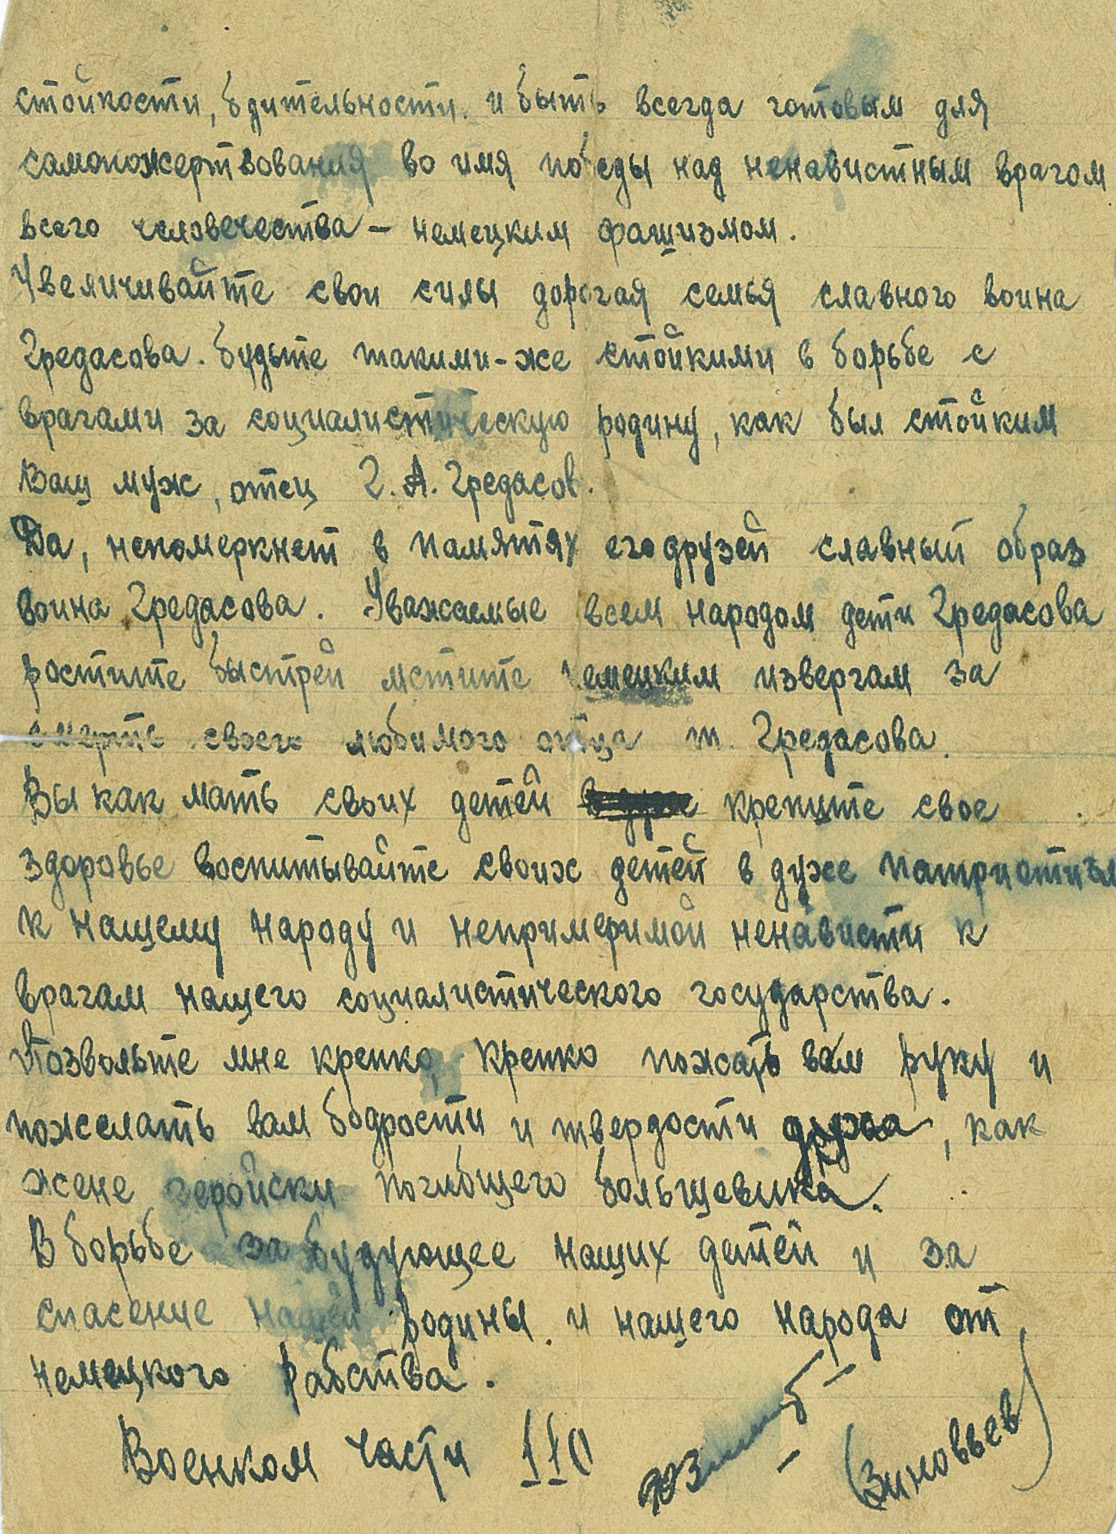 стойкости, бдительности. и быть всегда готовым для
самопожертвования во имя победы над ненавистным врагом
всего человечества – немецким фашизмом.
Увеличивайте свои силы дорогая семья славного воина
Гредасова. Будьте такими-же стойкими в борьбе с
врагами за социалистическую родину, как был стойким
Ваш муж, отец Г. А. Гредасов.
Да, непомеркнет в памятях его друзей славный образ
воина Гредасова. Уважаемые всем народом дети Гредасова
ростите быстрей мстите немецким извергам за
смерть своего любимого отца т. Гредасова.
Вы как мать своих детей крепите свое
здоровье воспитывайте своих детей в духе патриотизма
к нашему народу и непримеримой ненависти к
врагам нашего социалистического государства.
Позвольте мне крепко, крепко пожать вам руку и
пожелать вам бодрости и твердости духа, как
жене геройски погибщего большевика.
В борьбе за будующее наших детей и за
спасение нашей родины. и нашего народа от
немецкого рабства.
Военком части 110 (Зиновьев)